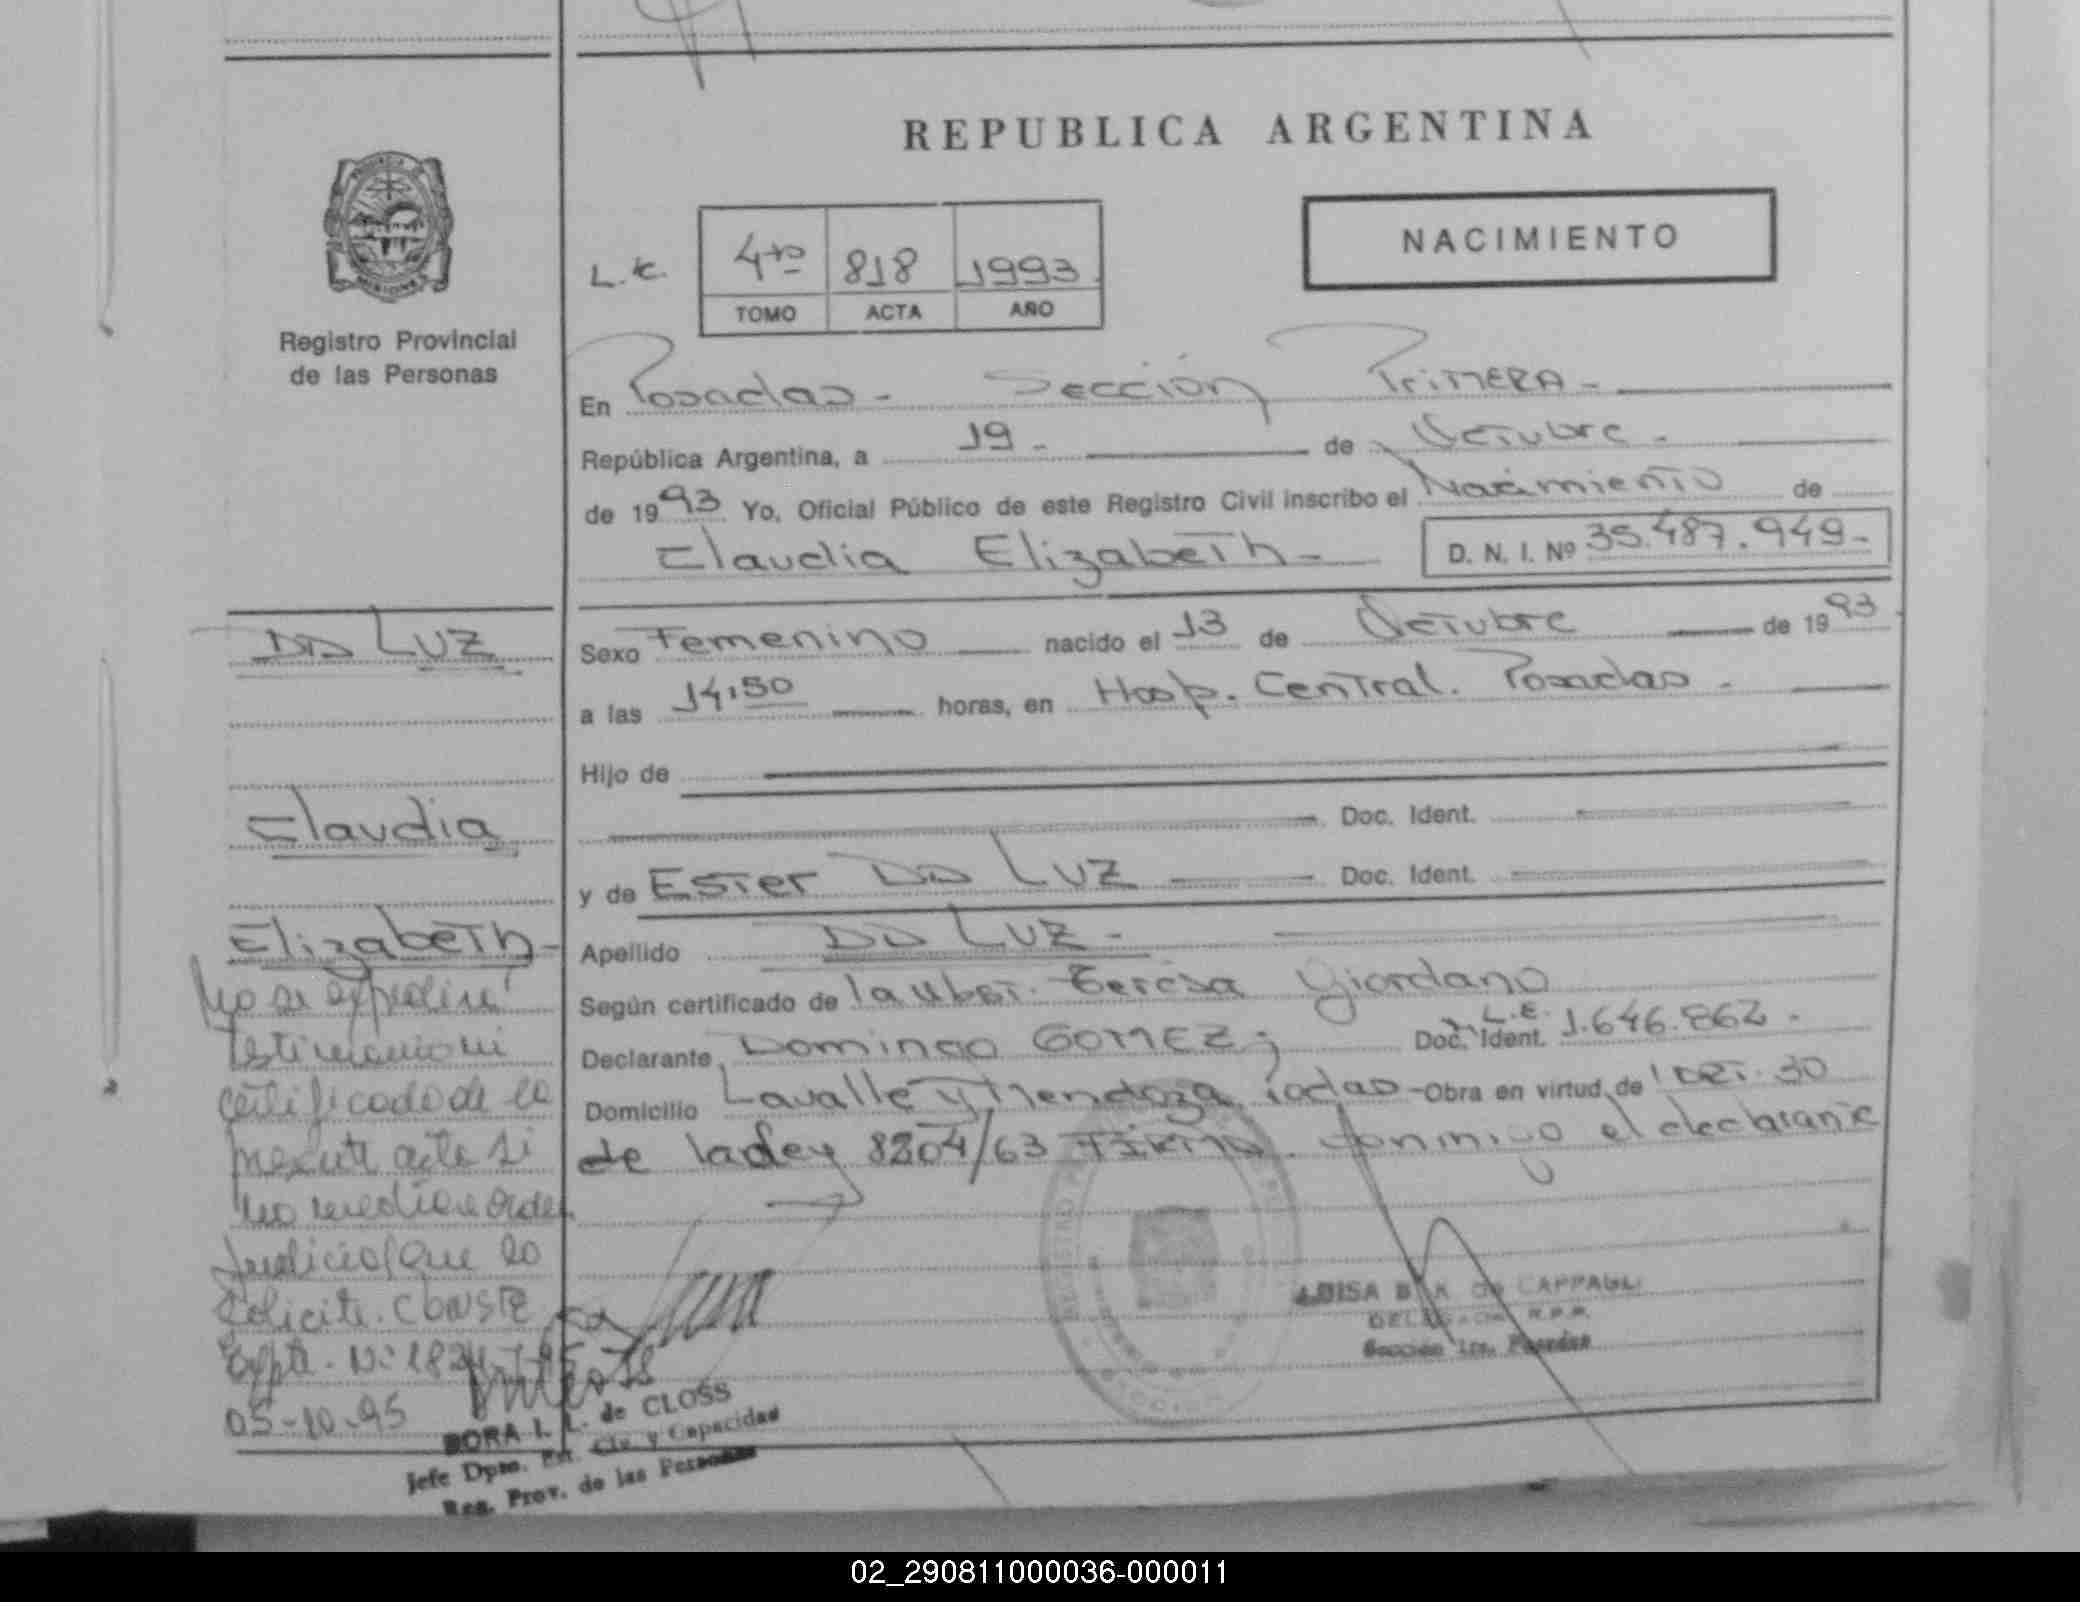 REPUBLICA ARGENTINA
NACIMIENTO
L.C. 4to 818 1993
TOMO ACTA AÑO
Registro Provincial
de las Personas
En Posadas - Sección Primera -
República Argentina, a 19 - de Octubre -
de 1993 Yo, Oficial Público de este Registro Civil inscribo el Nacimiento de
Claudia Elizabeth - D. N. I. Nº 35.487.949-
DA LUZ
Claudia
Elizabeth -
Sexo Femenino nacido el 13 de Octubre de 1993
a las 14,50 horas, en Hosp. Central. Posadas -
Hijo de
Doc. Ident.
y de Ester DA LUZ Doc. Ident.
Apellido DA LUZ -
Según certificado de la obst. Teresa Giordano
Declarante Domingo GOMEZ; Doc. Ident. L.E. 1.646.862 -
Domicilio Lavalle y Mendoza, Pdas - Obra en virtud de l'ART. 30
de la ley 8204/63 FIRMA conmigo el declarante
No se expedirá
testimonio ni
certificado de la
presente acta si
no mediare orden
Judicial que lo
solicite. CONSTE
Expte. Nº
05-10-95
LUISA de CAPPAGLI
Sección 1ra. Posadas
I. L. de CLOSS
Jefe Dpto. Est. Civ. y Capacidad
Reg. Prov. de las Personas
02_290811000036-000011